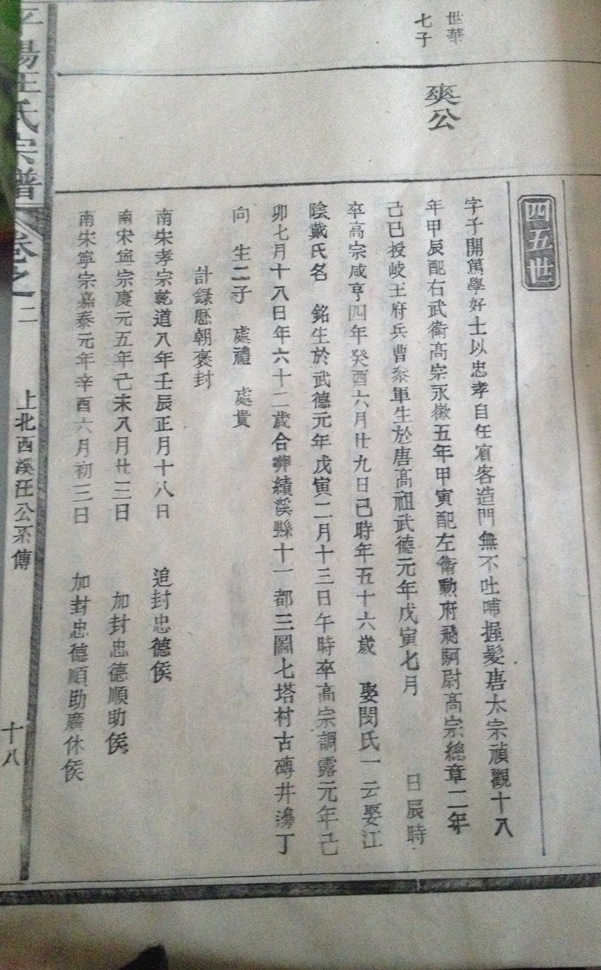 世華
七子
爽公
四五世
字子開篤學好士以忠孝自任賔客造門無不吐哺握髪唐太宗禎觀十八
年甲辰配右武衛高宗永徽五年甲寅配左衛勲府飛騎尉高宗總章二年
己巳授岐王府兵曹叅軍生於唐高祖武德元年戊寅七月 日辰時
卒高宗咸亨四年癸酉六月廿九日巳時年五十六歲 娶閔氏一云娶江
陰戴氏名 銘生於武德元年戊寅二月十三日午時卒高宗調露元年己
卯七月十八日年六十二歲合葬績溪縣十一都三圖七塔村古磚井邊丁
向 生二子 處禮 處貴
計錄歷朝褒封
南宋孝宗乾道八年壬辰正月十八日 追封忠德侯
南宋寧宗慶元五年己未八月廿三日 加封忠德順助侯
南宋寧宗嘉泰元年辛酉六月初三日 加封忠德順助廣休侯
平陽汪氏宗譜 卷之二 上北西溪汪公系傳 十八